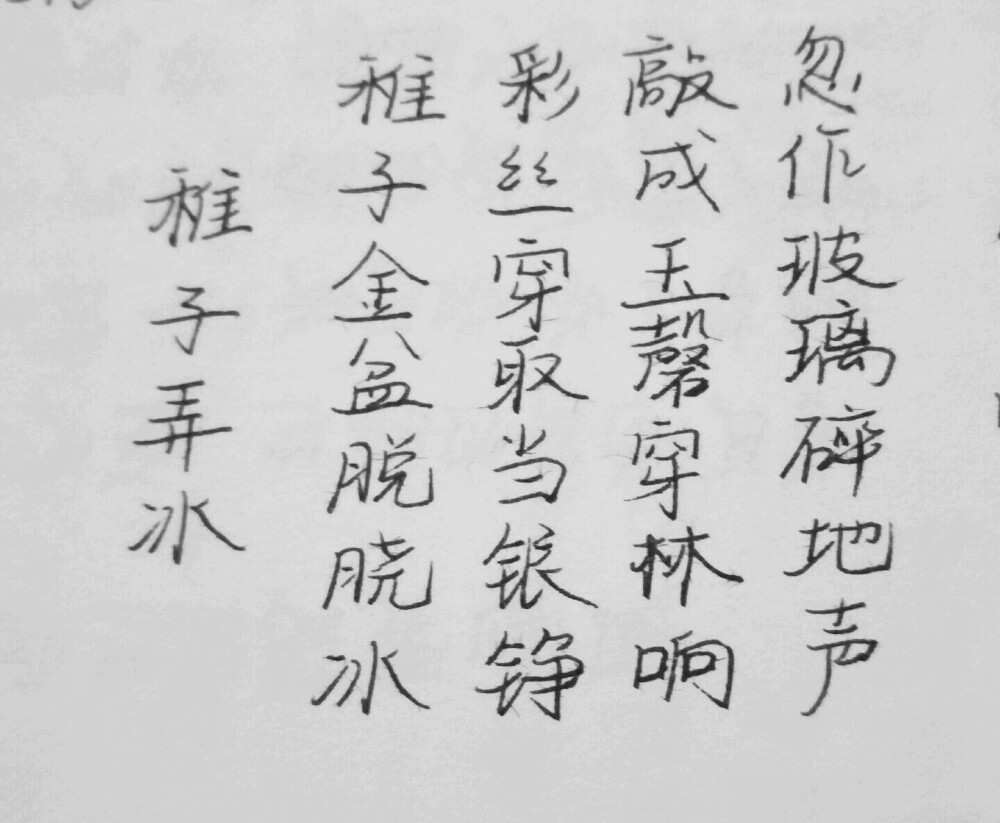 稚子弄冰
稚子金盆脱晓冰
彩丝穿取当银铮
敲成玉磬穿林响
忽作玻璃碎地声